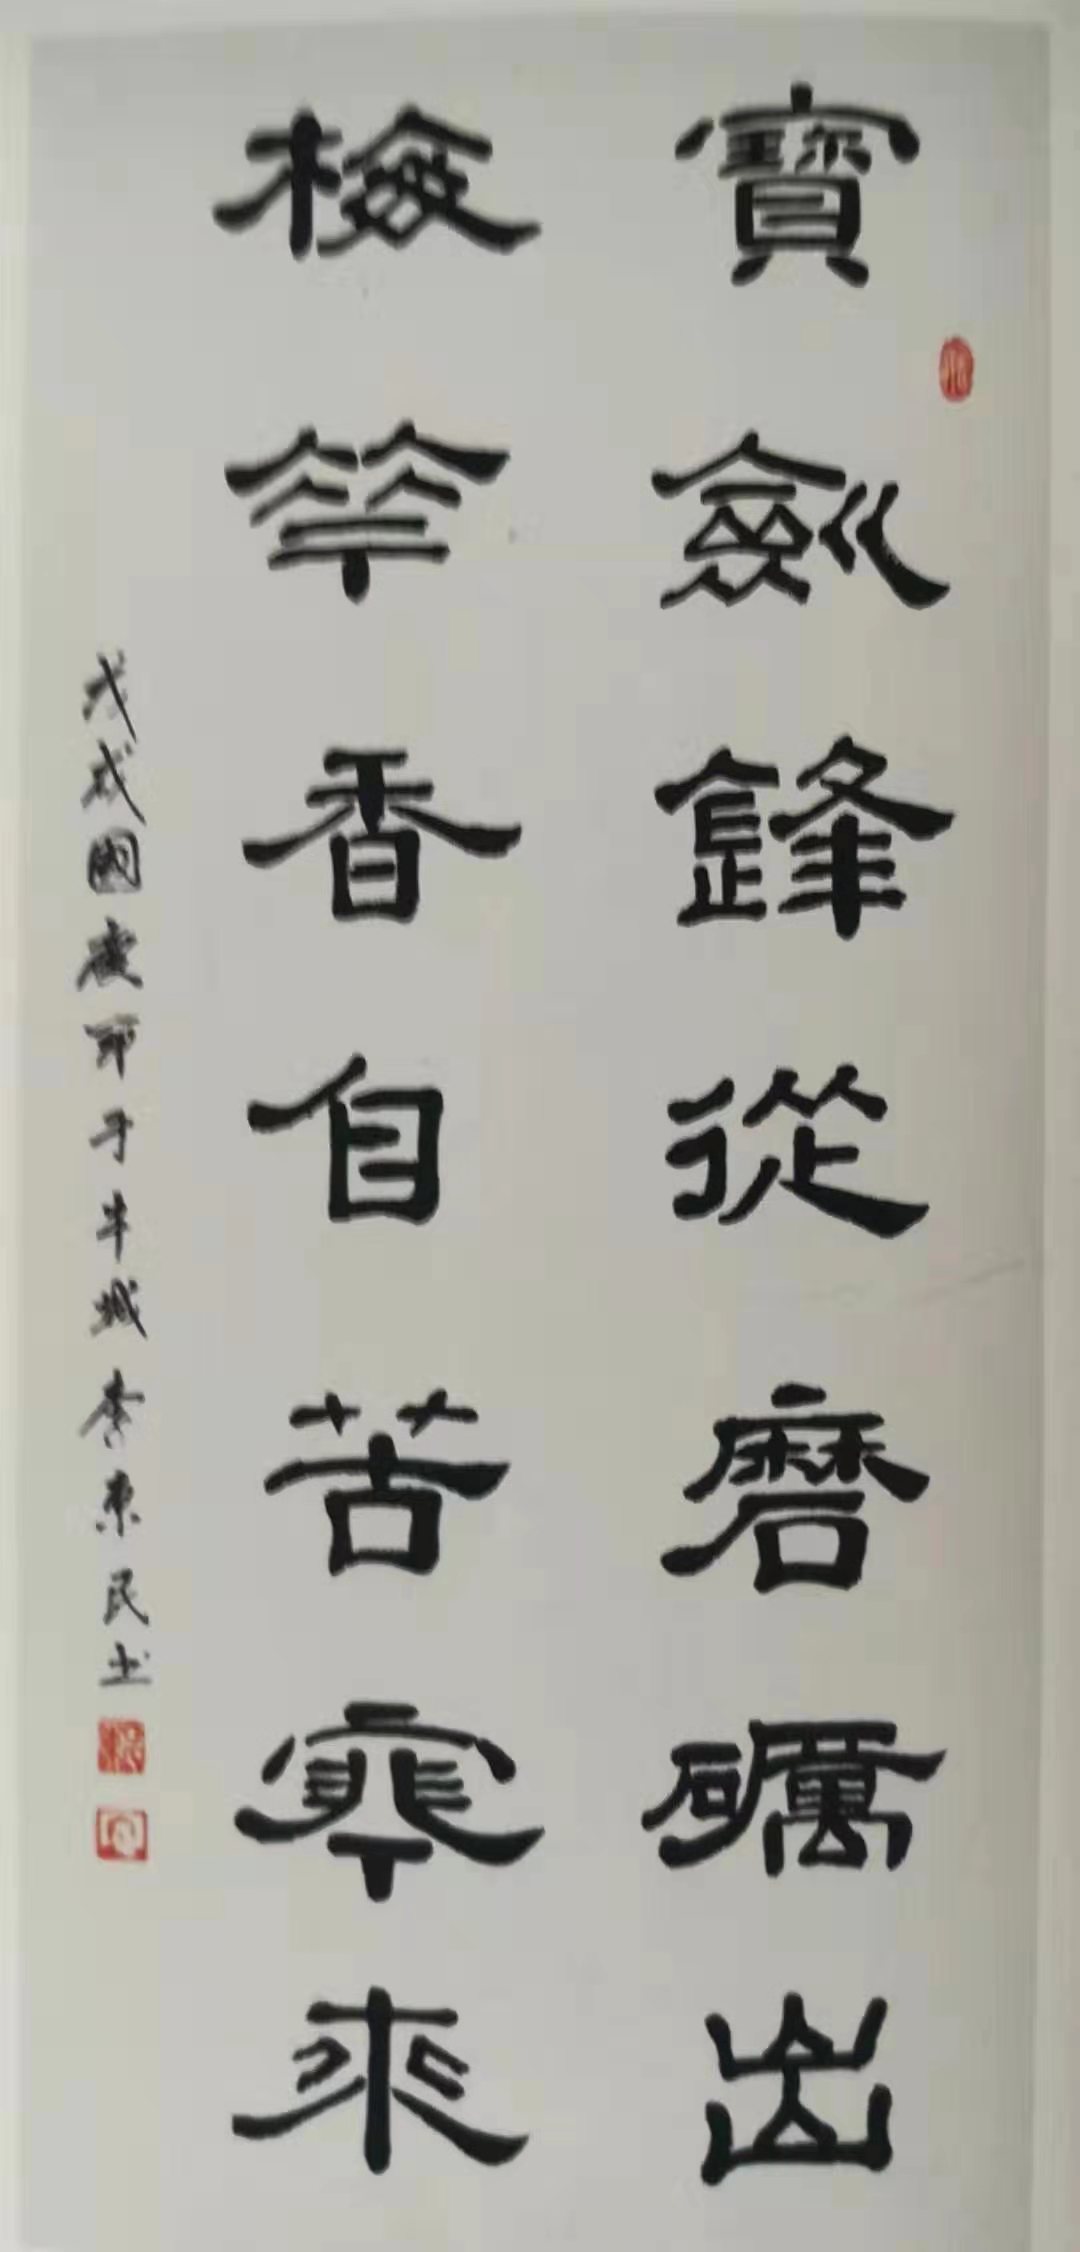 寶劍鋒從磨礪出
梅華香自苦寒來
戊戌國慶節于牛城李東民书